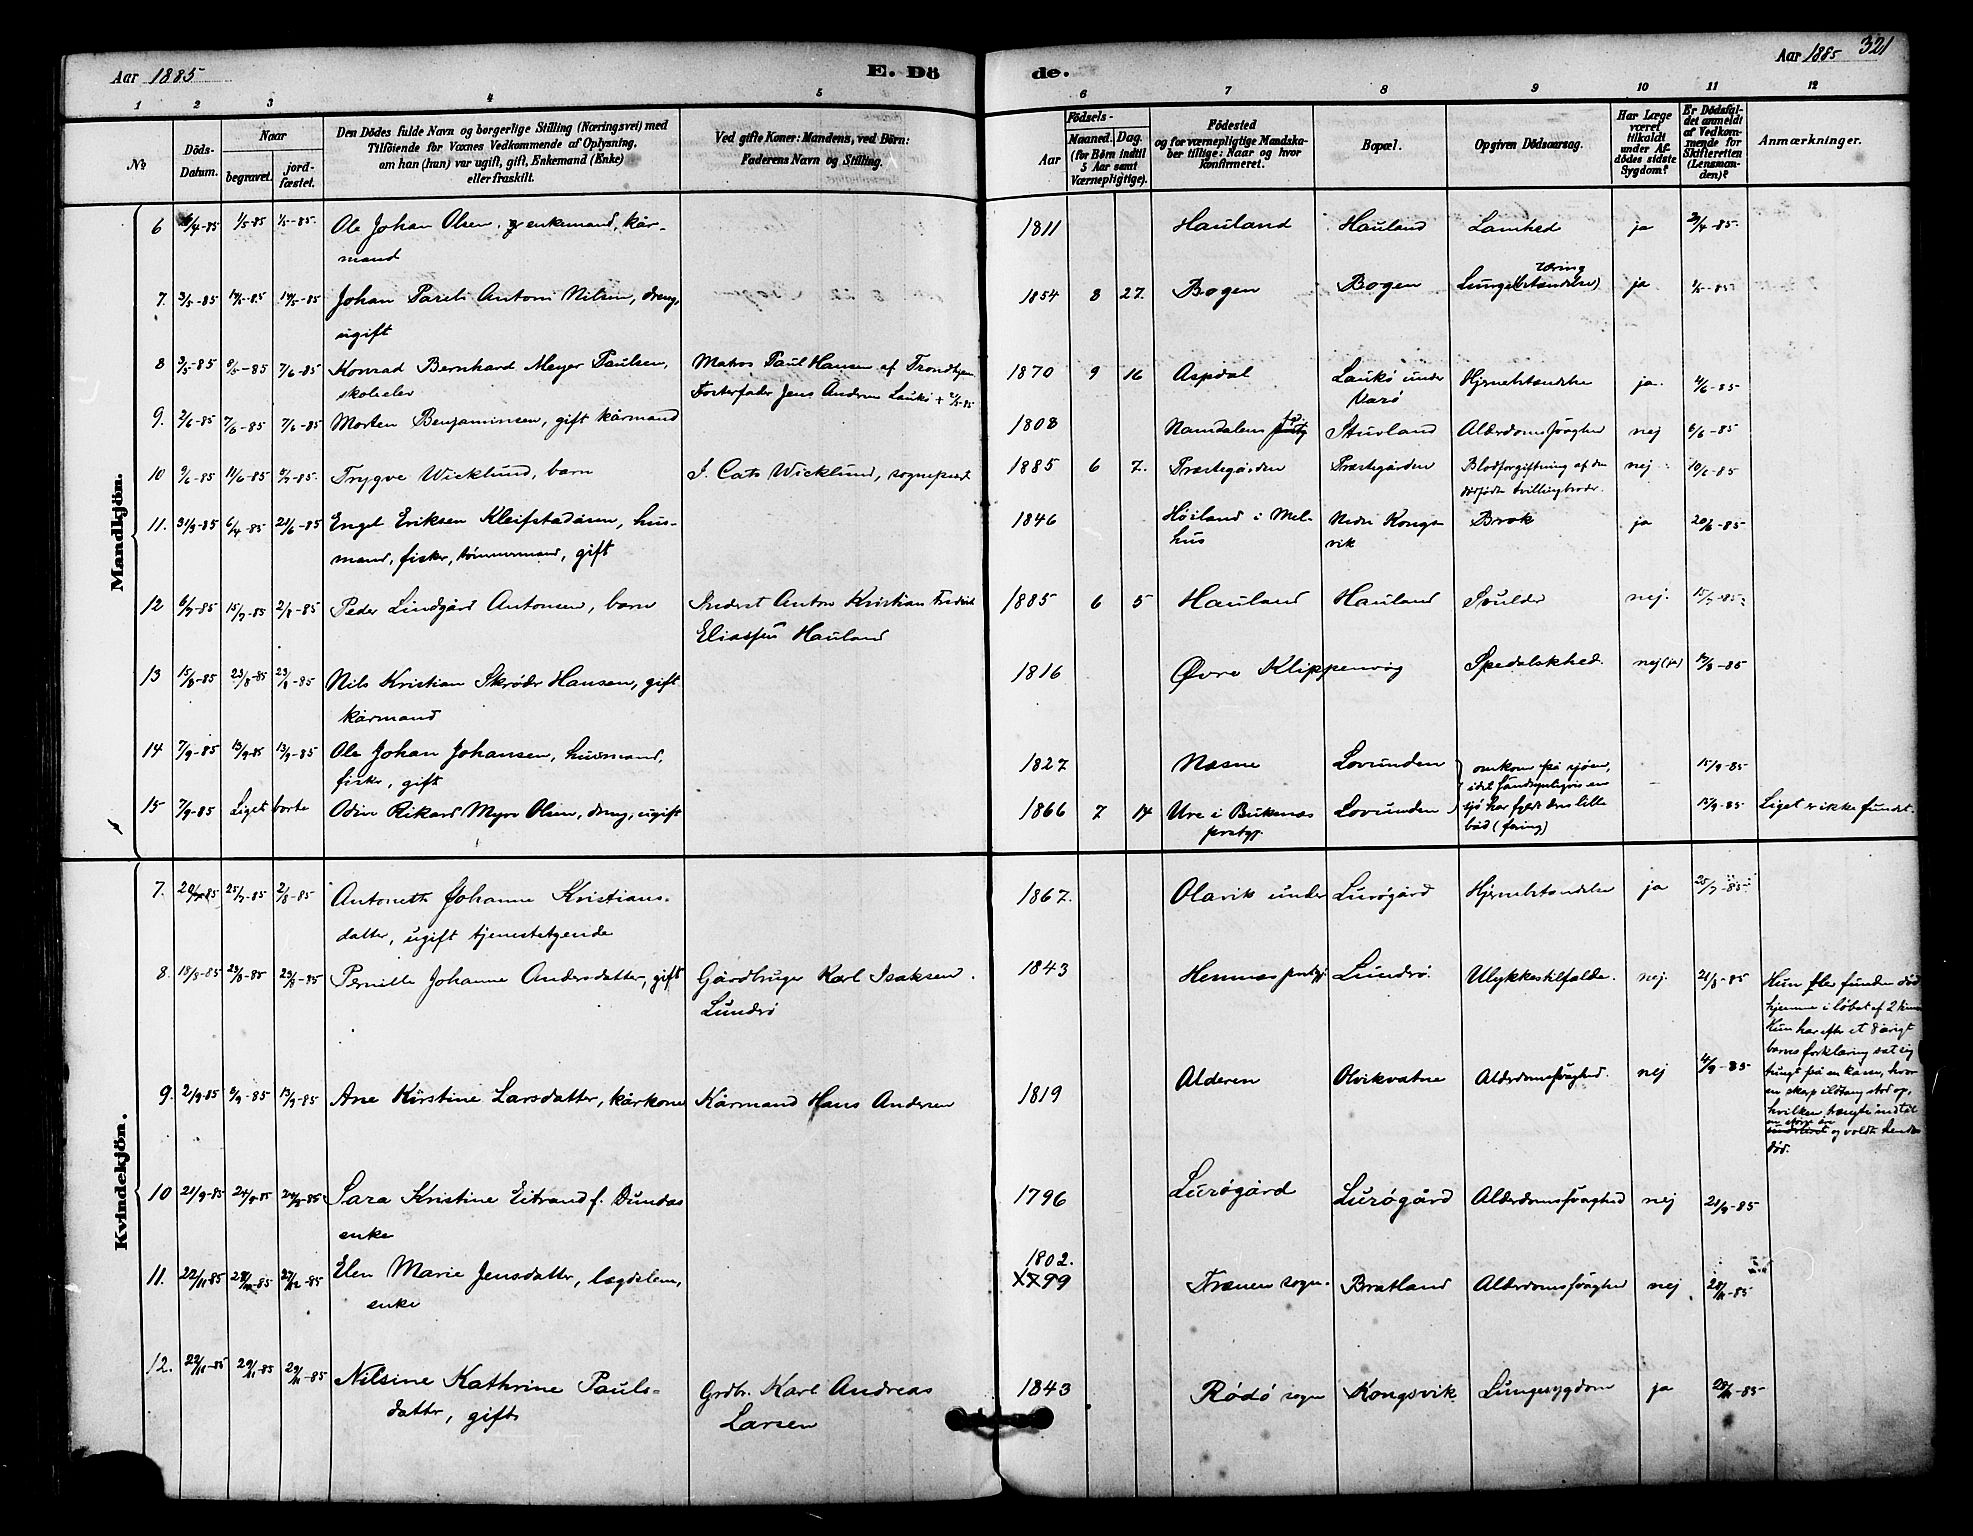 Aar 1885
E. Dö
de.
Aar 1885 321
1 2 3 4 5 6 7 8 9 10 11 12
No
Döds-
Datum.
Naar
begravet.
jord-
fæstet.
Den Dödes fulde Navn og borgerlige Stilling (Næringsvei) med
Tilföiende for Voxnes Vedkommende af Oplysning,
om han (hun) var ugift, gift, Enkemand (Enke)
eller fraskilt.
Ved gifte Koner: Mandens, ved Börn:
Faderens Navn og Stilling.
Födsels-
Aar
Maaned. Dag.
(for Børn indtil
5 Aar samt
Værnepligtige).
Födested
og for værnepligtige Mandska-
ber tillige: Naar og hvor
konfirmeret.
Bopæl.
Opgiven Dödsaarsag.
Har Læge
været
tilkaldt
under Af-
dödes sidste
Sygdom?
Er Dödsfal-
det anmeldt
af Vedkom-
mende for
Skifteretten
(Lensman-
den)?
Anmærkninger.
Mandkjön.
6 /4-85 1/5-85 1/5-85. Ole Johan Olsen, enkemand, kår-
mand
1811 Hauland Hauland Lamhed ja /4-85.
7. 3/5-85 17/5-85 17/5-85 Johan Pareli Antoni Nilsen, dreng,
ugift
1854 8 27. Bogen Bogen Lunge(betændelse) tæring ja /5-85
8 3/5-85 8/5-85 7/6-85 Konrad Bernhard Meyer Paulsen,
skoleelev
Matros Paul Hansen af Trondhjem
Fosterfader Jens Andreas Laukö
1870 9 16 Aspdal Laukö under
Varö
Hjernebetændelse ja. 4/6-85
9. 2/6-85 7/6-85 7/6-85 Morten Benjaminsen, gift kårmand
1808 Namdalens Stuvland Alderdomssvaghed nej 6/6-85
10 9/6-85 11/6-85 5/7-85. Trygve Wicklund, barn J. Cats Wicklund, sogneprest
1885 6 7. Præstegården Præstegården Blodforgiftning af den
dødfødte tvillingbroder.
nej 10/6-85
11. 31/3-85 6/4-85 21/6-85 Engel Eriksen Kleifstadåsen, hus-
mand, fisker, tömmermand, gift
1846 Höiland i Mel-
hus
Nedre Kongs-
vik
Brok ja 20/6-85
12 6/7-85 15/7-85 2/8-85 Peder Lindgård Antonsen, barn Inderst Anton Kristian Fredrik
Eliassen Hauland
1885 6 5 Hauland Hauland Svulder nej. 15/7-85.
13 15/8-85 23/8-85 23/8-85 Nils Kristian Skröder Hansen, gift
kårmand
1816 Øvre Klippenvåg Spedalskhed. nej(ja) /8-85
14 7/9-85 13/9-85 13/9-85 Ole Johan Johansen, husmand,
fisker, gift
1827 Næsne Lovunden omkom på sjöen,
idet sandsynligvis en
sjö har fyldt den lille
båd (færing)
15/9-85
15 7/9-85 Liget borte Odin Rikard Myre Olsen, dreng, ugift
1866 7 14 Ure i Buksnæs
prstgj.
Lovunden 15/9-85 Liget er ikke fundet.
Kvindekjön.
7. 20/7-85 25/7-85 2/8-85 Antonette Johanne Kristians-
datter, ugift tjenestetgende
1867. Olavik under Luröygård Hjernebetændelse ja 25/7-85
8. 18/8-85 23/8-85 23/8-85 Pernille Johanne Andersdatter, gift Gårdbruger Karl Isaksen
Lundrö
1843 Hemnæs prstgj. Lundrö. Ulykkestilfælde. nej. 21/8-85 Hun blev funden död
hjemme i löbet af 2 timer
Hun har efter et 8 årigt
barns forklaring sat sig
tungt på en kasse, hvor
en skarp ildtang stod op,
hvilken trængte ind i et
en större åre
underlivet og voldte hendes
död.
9. 2/9-85 8/9-85 13/9-85 Ane Kirstine Larsdatter, kårkone Kårmand Hans Andersen
1819 Alderen Olvikvatne Alderdomssvaghed. nej 4/9-85
10 21/9-85 24/9-85 24/9-85 Sara Kristine Eitrand f. Dundas
enke
1796 Lurögård Lurögård Alderdomssvaghed nej 21/9-85
11. 22/11-85 28/11-85 27/12-85 Elen Marie Jensdatter, lægdslem,
enke
1802.
1799 Trænen sogn. Bratland Alderdomssvaghed nej 28/11-85
12. 22/11-85 29/11-85 29/11-85 Nilsine Kathrine Pauls-
datter, gift
Grdbr. Karl Andreas
Larsen
1843 Rödö sogn Kongsvik Lungesygdom ja 28/11-85